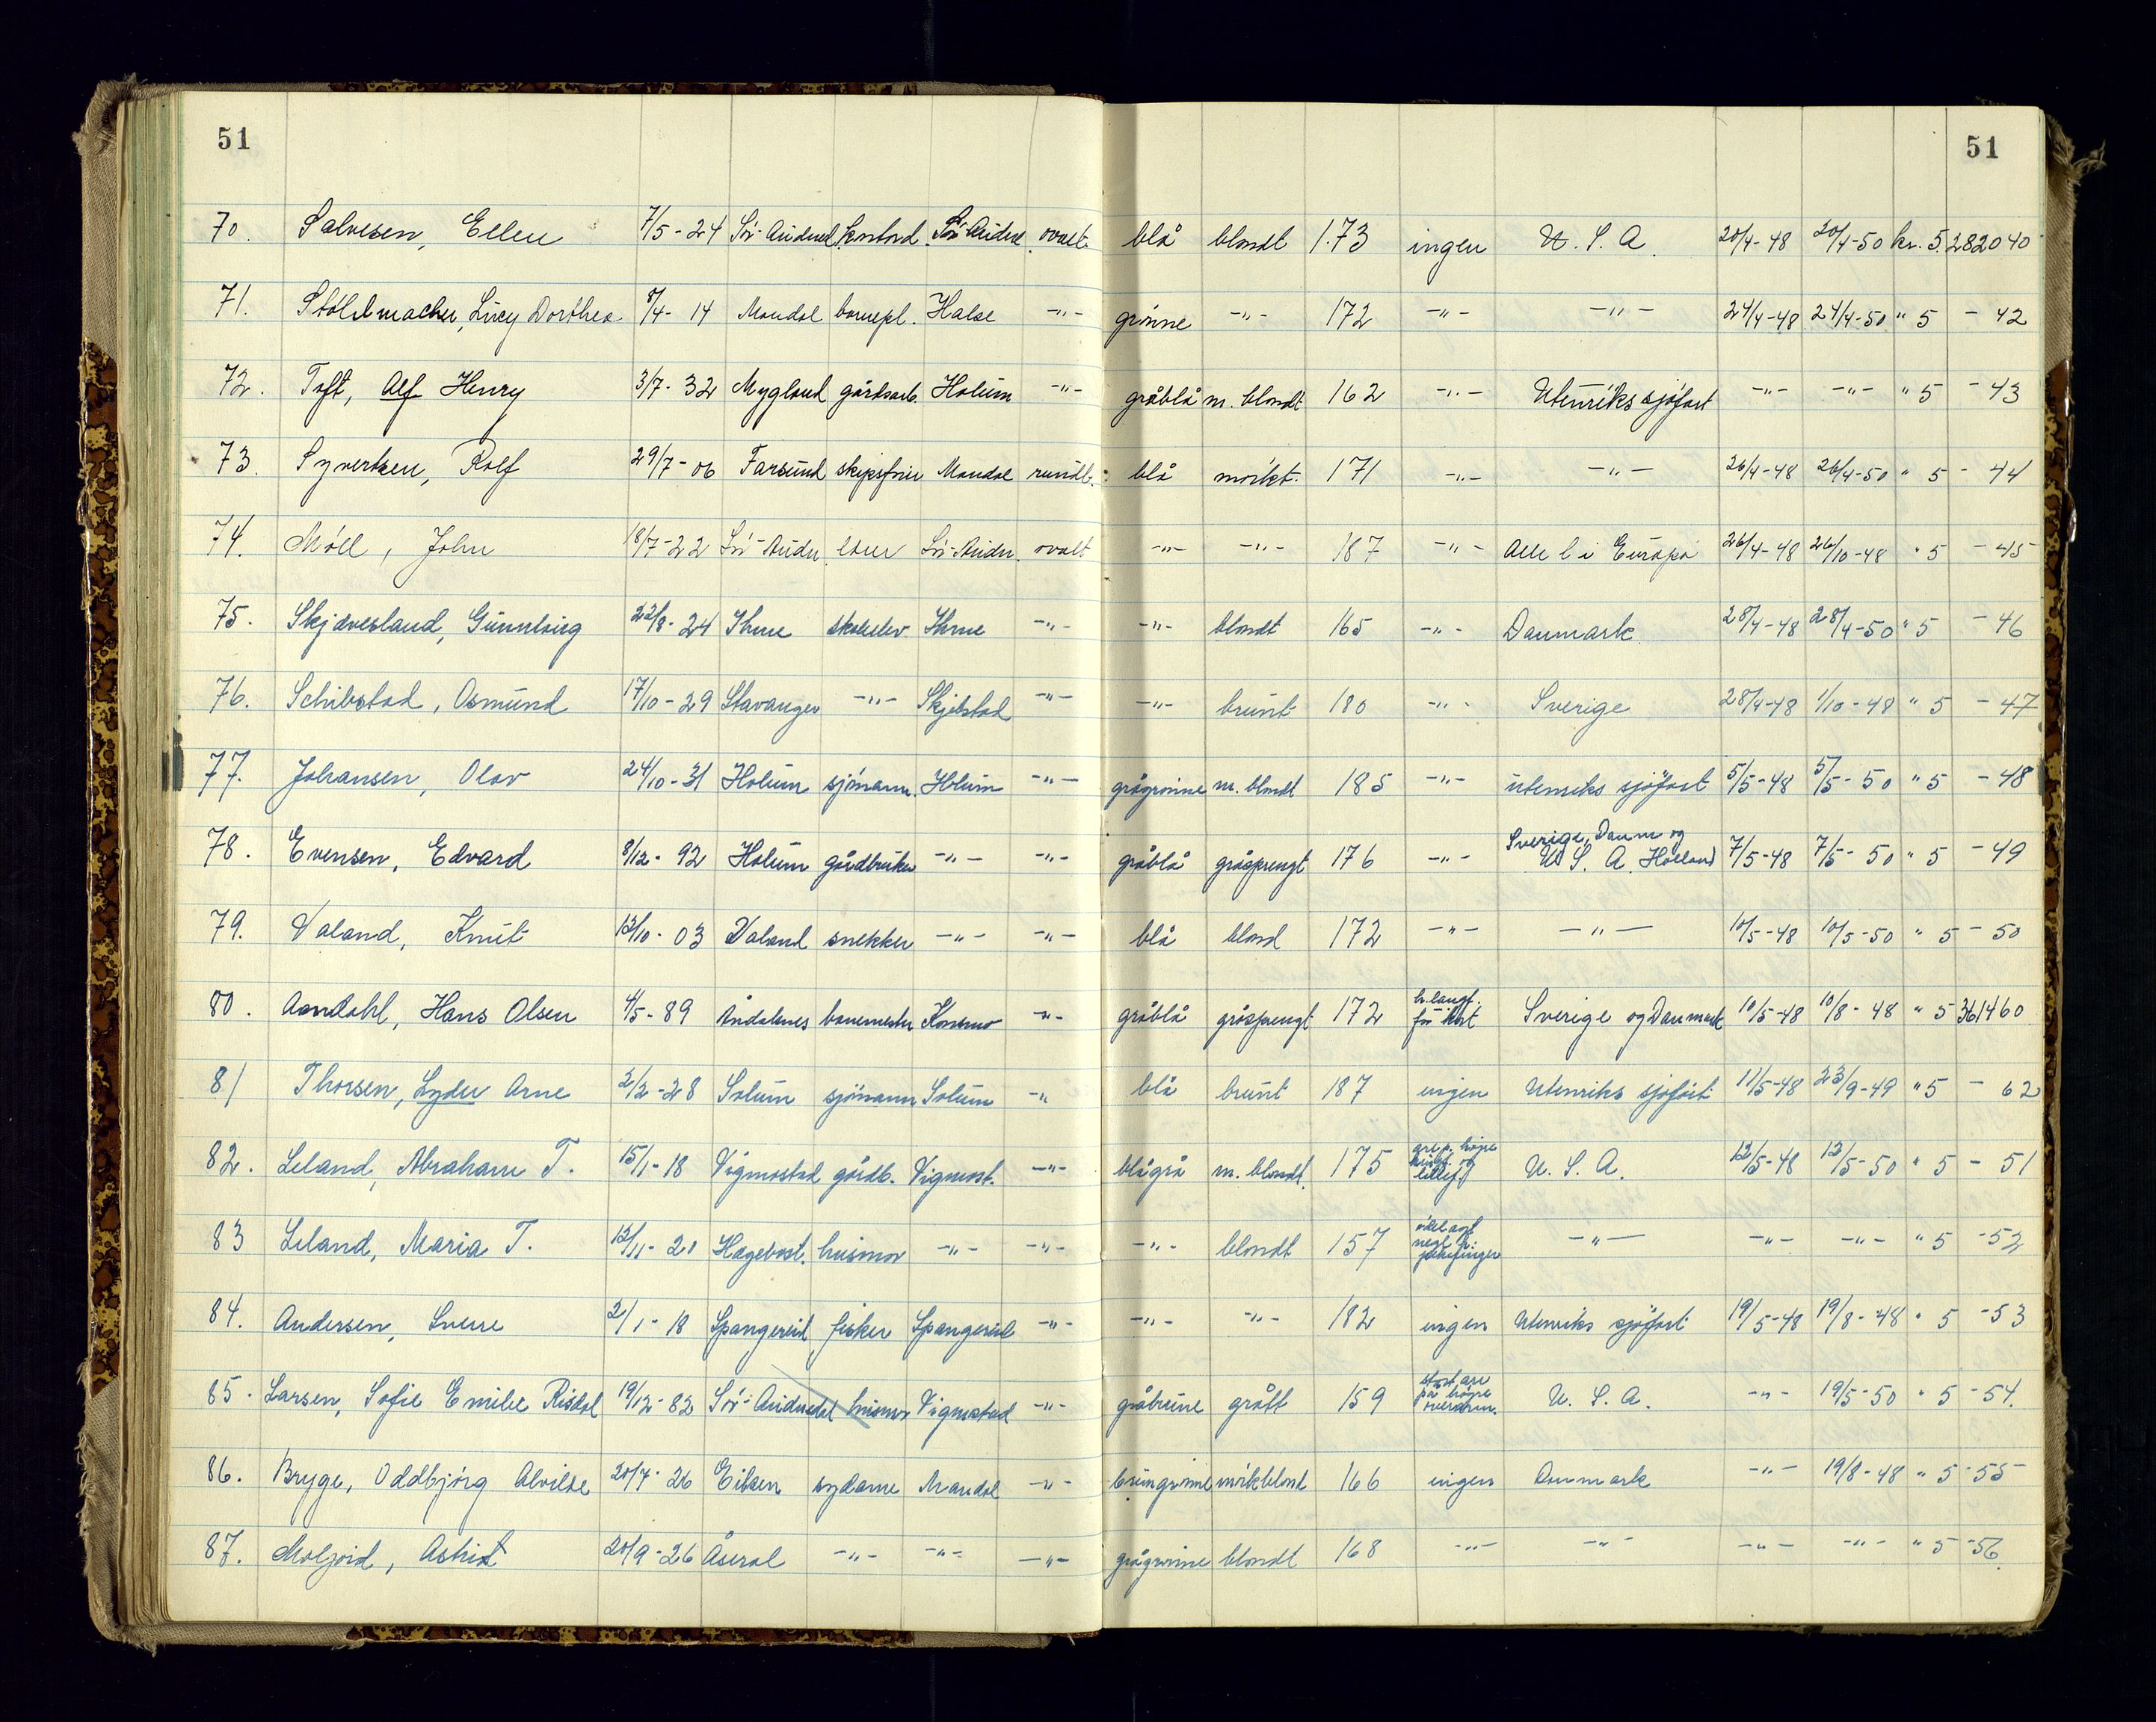 51 51
70. Salvesen, Ellen 7/5-24 Sör-Audnedal kontord. Sör-Audne. ovalt blå blondt 1.73 ingen U.S.A. 20/4-48 20/4-50 kr. 5. 282040
71. Lucy Dorthea 8/4-14 Mandal barnepl. Halse -"- grönne -"- 172 -"- -"- 24/4-48 24/4-50 " 5 - 42
72. Toft, Alf Henry 3/7-32 Mygland gårdsarb. Holum -"- gråblå m. blondt 162 -"- Utenriks sjöfart -"- -"- " 5 - 43
73. Syvertsen, Rolf 29/7-06 Farsund Mandal rundt. blå mörkt. 171 -"- -"- 26/4-48 26/4-50 " 5 - 44
74. Möll, John 18/7-22 Sör-Audn. lærer Sör-Audn. ovalt -"- -"- 187 -"- Alle l i Europa 26/4-48 26/10-48 " 5 - 45
75. Skjævesland, Gunnborg 22/8-24 Ihme skoleelev Ihme -"- -"- blondt 165 -"- Danmark 28/4-48 28/4-50 " 5 - 46
76. Schibstad, Osmund 17/10-29 Stavanger -"- Skjebstad -"- -"- brunt 180 -"- Sverige 28/4-48 1/10-48 " 5 - 47
77. Johansen, Olav 24/10-31 Holum sjömann. Holum -"- grågrönne m. blondt 185 -"- utenriks sjöfart 5/5-48 5/5-50 " 5 - 48
78. Evensen, Edvard 8/12-92 Holum gårdbruker -"- -"- gråblå gråsprengt 176 -"- Sverige, Danm og U.S.A. Holland 7/5-48 7/5-50 " 5 - 49
79. Valand, Knut 13/10-03 Valand snekker -"- -"- blå blond 172 -"- -"- 10/5-48 10/5-50 " 5 - 50
80. Aandahl, Hans Olsen 4/5-89 Åndalsnes banemester Konsmo -"- gråblå gråsprengt 172 Sverige og Danmark 10/5-48 10/8-48 " 5 361460
81 Thorsen, Lyder Arne 2/2-28 Solum sjömann Solum -"- blå brunt 187 ingen Utenriks sjöfart 11/5-48 23/9-49 " 5 - 62
82. Leland, Abraham T. 15/1-18 Vigmostad gårdb. Vigmost. -"- blågrå m. blondt. 175 U.S.A. 12/5-48 12/5-50 " 5 - 51
83 Leland, Maria T. 12/11-20 Hægebost. husmor -"- -"- -"- blondt 157 -"- -"- -"- " 5 - 52
84. Andersen, Sverre 2/1-18 Spangereid fisker Spangereid -"- -"- -"- 182 ingen Utenriks sjöfart 19/5-48 19/8-48 " 5 - 53
85. Larsen, Sofie Emilie Risdal 19/12-82 Sör-Audnedal husmor Vigmostad -"- gråbrune grått 159 stort arr på höyre overarm. U.S.A. -"- 19/5-50 " 5 - 54.
86. Bryge, Oddbjörg Alvilde 20/7-26 Eiken sydame Mandal -"- brungrönne mörkblond 166 ingen Danmark -"- 19/8-48 " 5 - 55
87. Astrid 20/9-26 Åseral -"- -"- -"- grågrönne blondt 168 -"- -"- -"- -"- " 5 - 56.